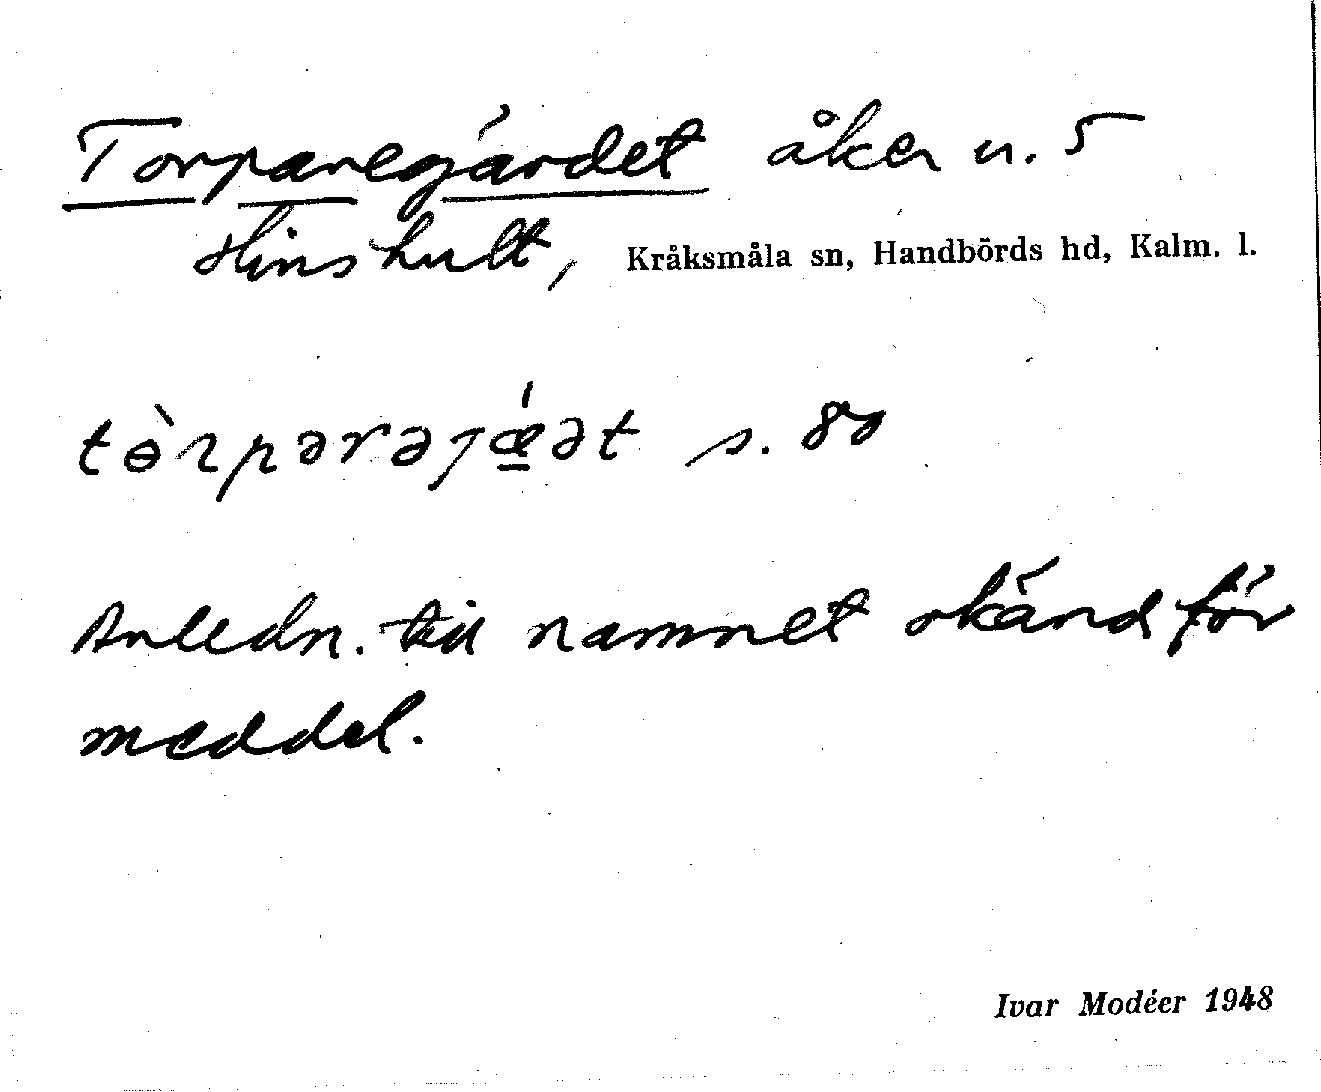 Torparegärdet åker n. 5
Hinshult, Kråksmåla sn, Handbörds hd, Kalm. l.
tɵ̀rpərəɟǽ̱ət s. 80
Anledn. till namnet okänd för
meddel.
Ivar Modéer 1948